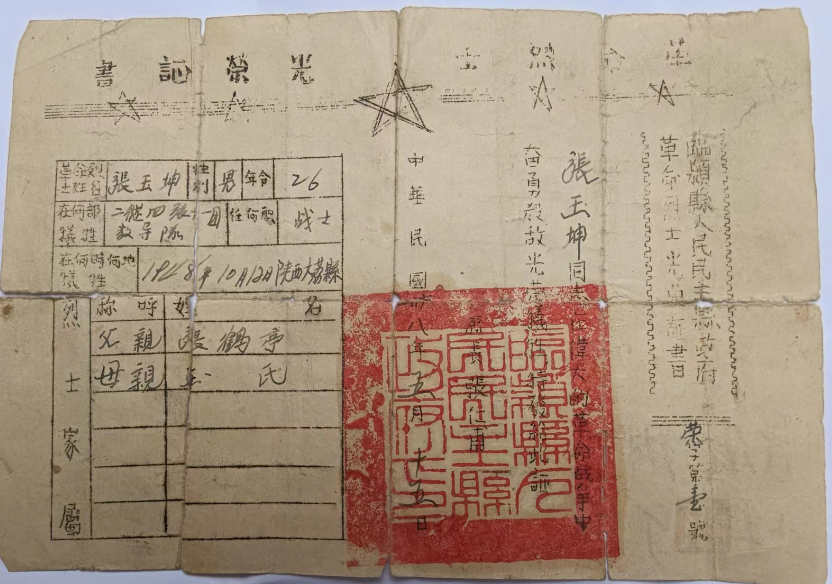 革命烈士光榮証書
臨潁縣人民民主縣政府
革命烈士光榮証書
榮字第壹號
張玉坤同志在偉大的革命戰爭中
奮勇殺敵光榮犧牲特發給此証
縣長張仁甫
中華民國卅八年五月十五日
臨潁縣人民民主縣政府印
革命烈士姓名 張玉坤 性別 男 年令 26
在何部犧牲 二縱四旅十一團教导隊 任何職 战士
在何時何地犧牲 1948年10月12日陕西大荔縣
烈士家屬
称呼 姓名
父親 張鶴亭
母親 王氏